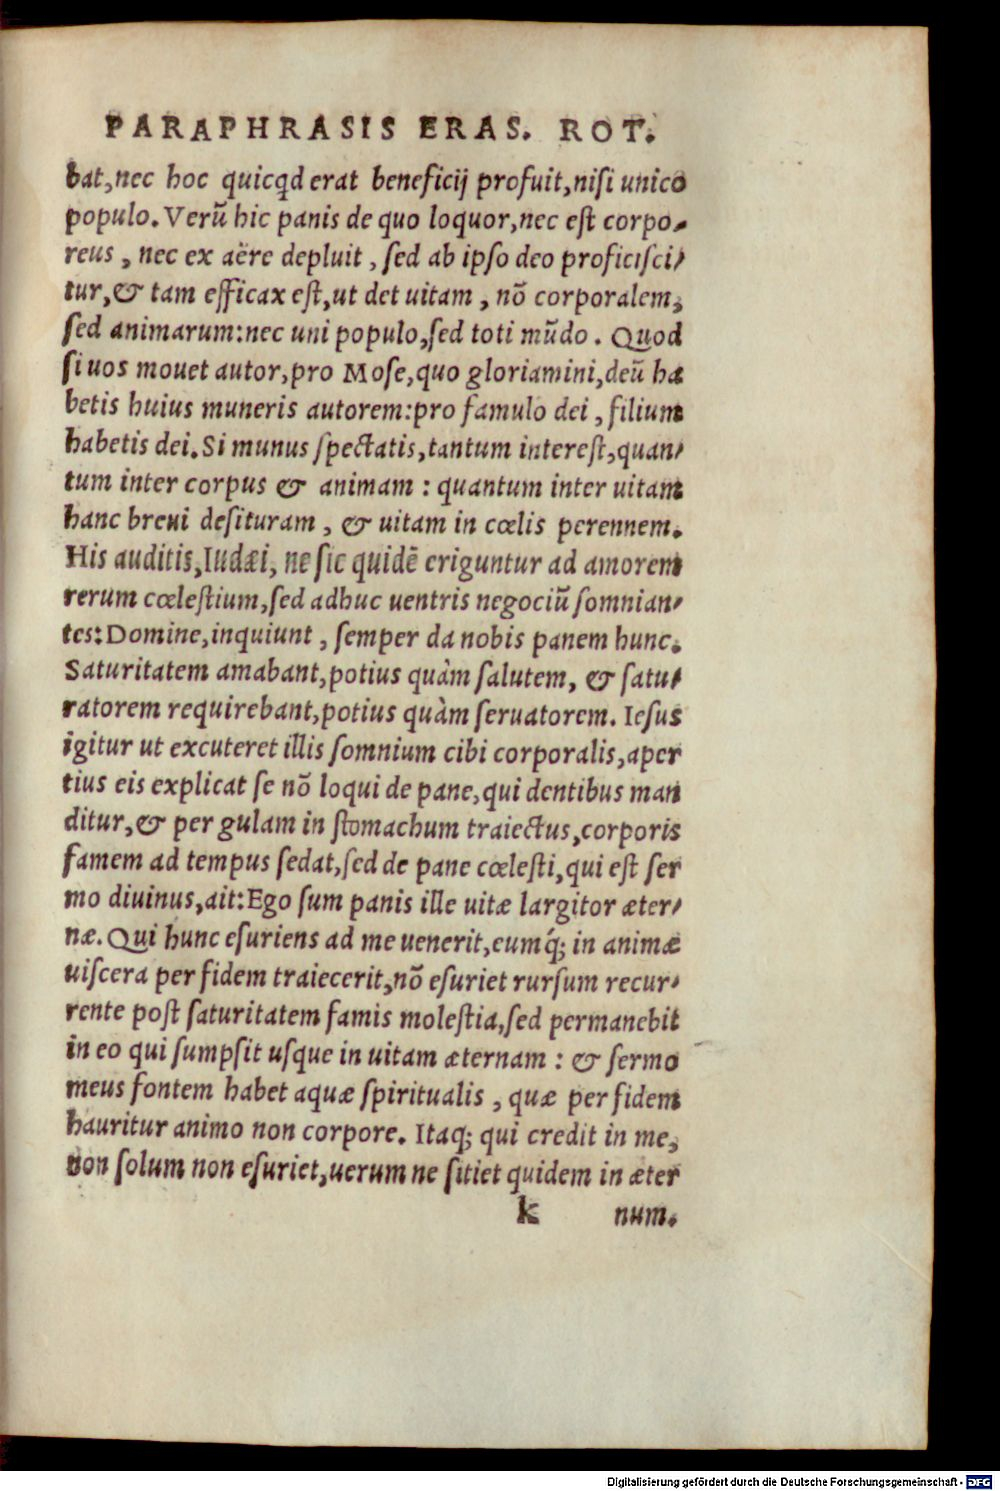 PARAPHRASIS ERAS. ROT.
bat, nec hoc quicq̃d erat beneficij profuit, niſi unico
populo. Verũ hic panis de quo loquor, nec eſt corpo-
reus, nec ex aëre depluit, ſed ab ipſo deo proficiſci-
tur, & tam efficax eſt, ut det uitam, nõ corporalem,
ſed animarum: nec uni populo, ſed toti mũdo. Quod
ſi uos mouet autor, pro Moſe, quo gloriamini, deũ ha
betis huius muneris autorem: pro famulo dei, filium
habetis dei. Si munus ſpectatis, tantum intereſt, quan-
tum inter corpus & animam: quantum inter uitam
hanc breui deſituram, & uitam in cœlis perennem.
His auditis, Iudæi, ne ſic quidẽ eriguntur ad amorem
rerum cœleſtium, ſed adhuc uentris negociũ ſomnian-
tes: Domine, inquiunt, ſemper da nobis panem hunc.
Saturitatem amabant, potius quàm ſalutem, & ſatu-
ratorem requirebant, potius quàm ſeruatorem. Ieſus
igitur ut excuteret illis ſomnium cibi corporalis, aper
tius eis explicat ſe nõ loqui de pane, qui dentibus man
ditur, & per gulam in ſtomachum traiectus, corporis
famem ad tempus ſedat, ſed de pane cœleſti, qui eſt ſer
mo diuinus, ait: Ego ſum panis ille uitæ largitor æter-
næ. Qui hunc eſuriens ad me uenerit, eumq́; in animæ
uiſcera per fidem traiecerit, nõ eſuriet rurſum recur-
rente poſt ſaturitatem famis moleſtia, ſed permanebit
in eo qui ſumpſit uſque in uitam æternam: & ſermo
meus fontem habet aquæ ſpiritualis, quæ per fidem
hauritur animo non corpore. Itaq; qui credit in me,
non ſolum non eſuriet, uerum ne ſitiet quidem in æter
k num.
Digitalisierung gefördert durch die Deutsche Forschungsgemeinschaft - DFG